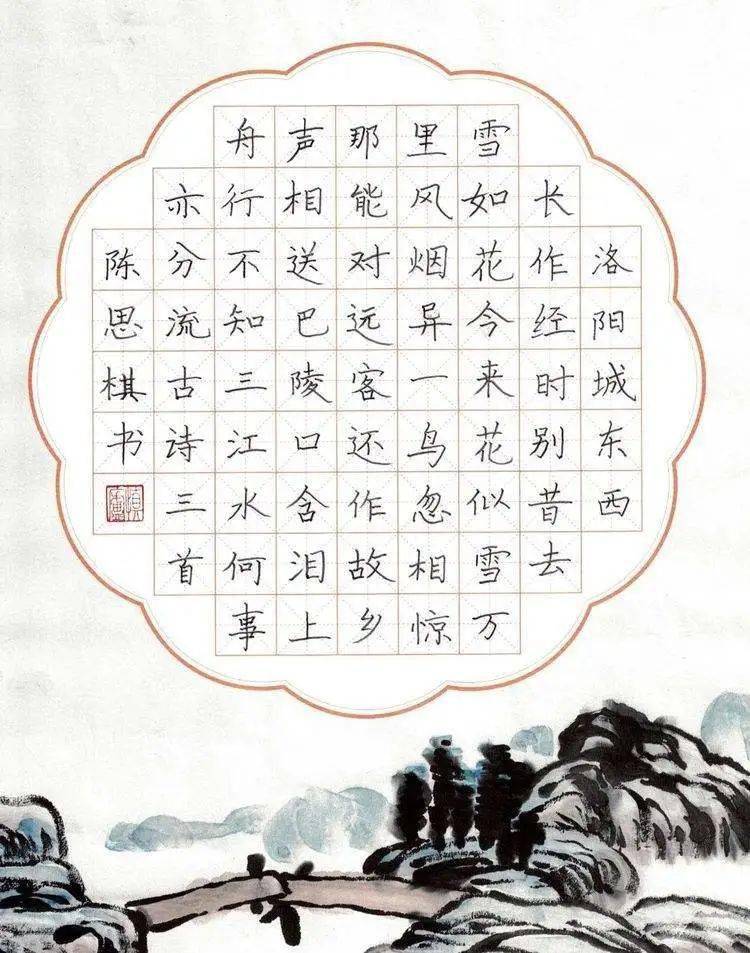 洛阳城东西
长作经时别昔去
雪如花今来花似雪万
里风烟异一鸟忽相惊
那能对远客还作故乡
声相送巴陵口含泪上
舟行不知三江水何事
亦分流古诗三首
陈思棋书